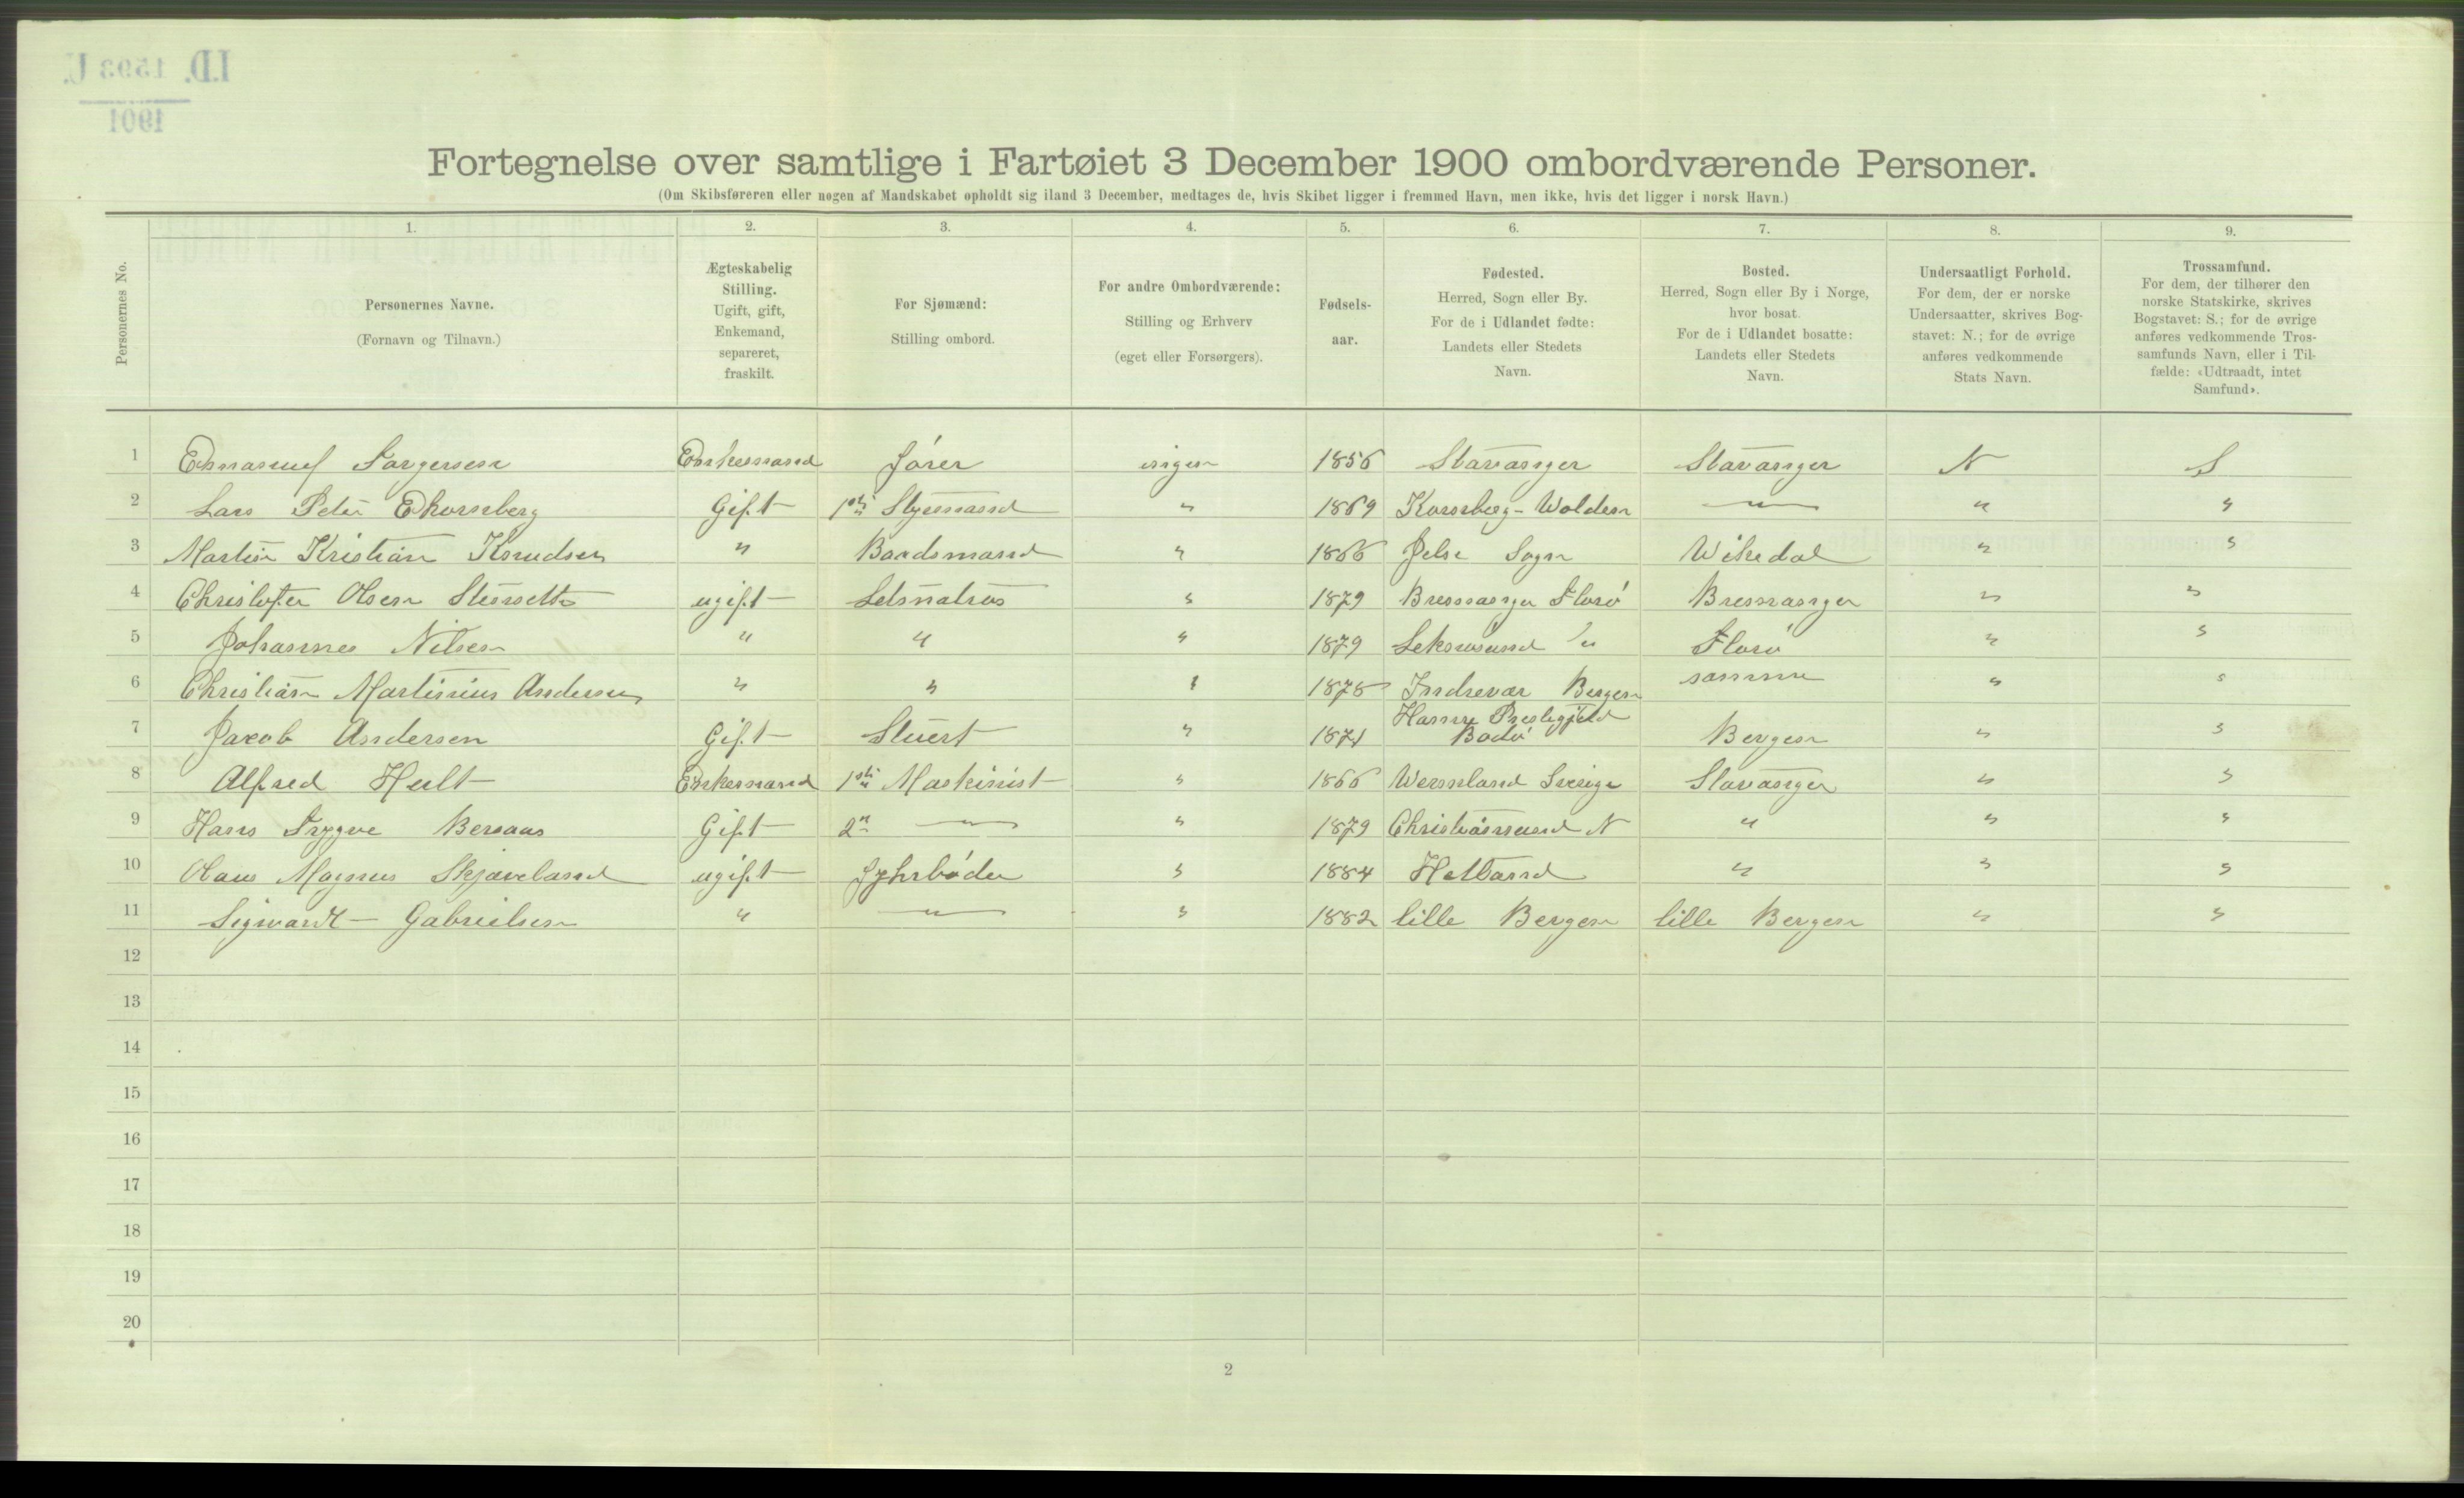 I.D. 1593 U.
1901
Fortegnelse over samtlige i Fartøiet 3 December 1900 ombordværende Personer.
(Om Skibsføreren eller nogen af Mandskabet opholdt sig iland 3 December, medtages de, hvis Skibet ligger i fremmed Havn, men ikke, hvis det ligger i norsk Havn.)
Personernes No.
1. 2. 3. 4. 5. 6. 7. 8. 9.
Personernes Navne.
(Fornavn og Tilnavn.)
Ægteskabelig
Stilling.
Ugift, gift,
Enkemand,
separeret,
fraskilt.
For Sjømænd:
Stilling ombord.
For andre Ombordværende:
Stilling og Erhverv
(eget eller Forsørgers).
Fødsels-
aar.
Fødested.
Herred, Sogn eller By.
For de i Udlandet fødte:
Landets eller Stedets
Navn.
Bosted.
Herred, Sogn eller By i Norge,
hvor bosat.
For de i Udlandet bosatte:
Landets eller Stedets
Navn.
Undersaatligt Forhold.
For dem, der er norske
Undersaatter, skrives Bog-
stavet: N.; for de øvrige
anføres vedkommende
Stats Navn.
Trossamfund.
For dem, der tilhører den
norske Statskirke, skrives
Bogstavet: S.; for de øvrige
anføres vedkommende Tros-
samfunds Navn, eller i Til-
fælde: «Udtraadt, intet
Samfund».
1 Enkemand ingen 1856 Stavanger Stavanger N S
2 Lars Peter Gift 1ste Styrmand " 1869 — " — " "
3 Martin Kristian Knudsen " Baadsmand " 1866 Jelse Sogn Wikedal " "
4 Christofer Olsen ugift Letmatros " 1879 Bremanger Florø Bremanger " "
5 Johannes Nilsen " " " 1879 Florø " "
6 Christian Martinius Andersen " " " 1878 Indrevær Bergen samme " "
7 Jacob Andersen Gift Stuert " 1871 Hamerø Prestegjeld
Bodø Bergen " "
8 Alfred Hult Enkemand 1ste Maskinist " 1866 Wermland Sverige Stavanger " "
9 Hans Trygve Gift 2n — " — " 1879 Christiansund N " " "
10 Olaus Magnus Skjæveland ugift Fyhrbøder " 1884 Hetland " " "
11 Sigwardt Gabrielsen " — " — " 1882 lille Bergen lille Bergen " "
12
13
14
15
16
17
18
19
20
2